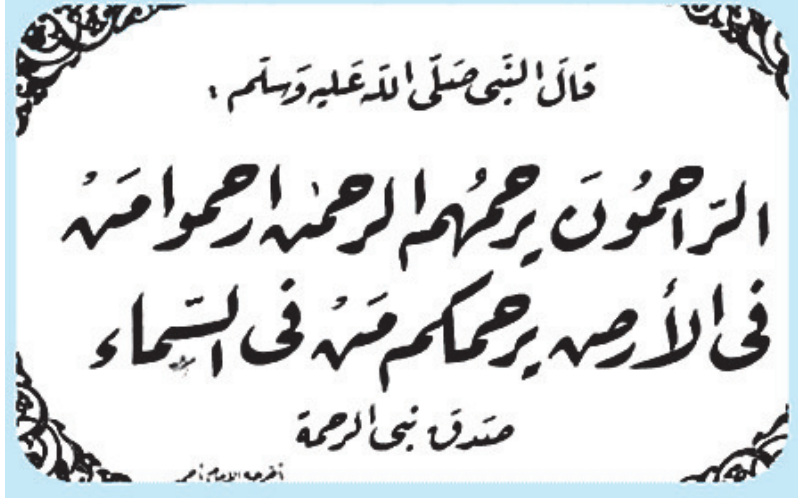 قَالَ النَّبِى صَلَّى اللّه عَليه وَسلّم :
الرَّاحمُونَ يرحمُهم الرحمٰن ارحموا مَنْ
فى الأَرض يرحمكم مَنْ فى السَّماء
صَدق نبى الرحمة
أخرجه الإمام أحمد